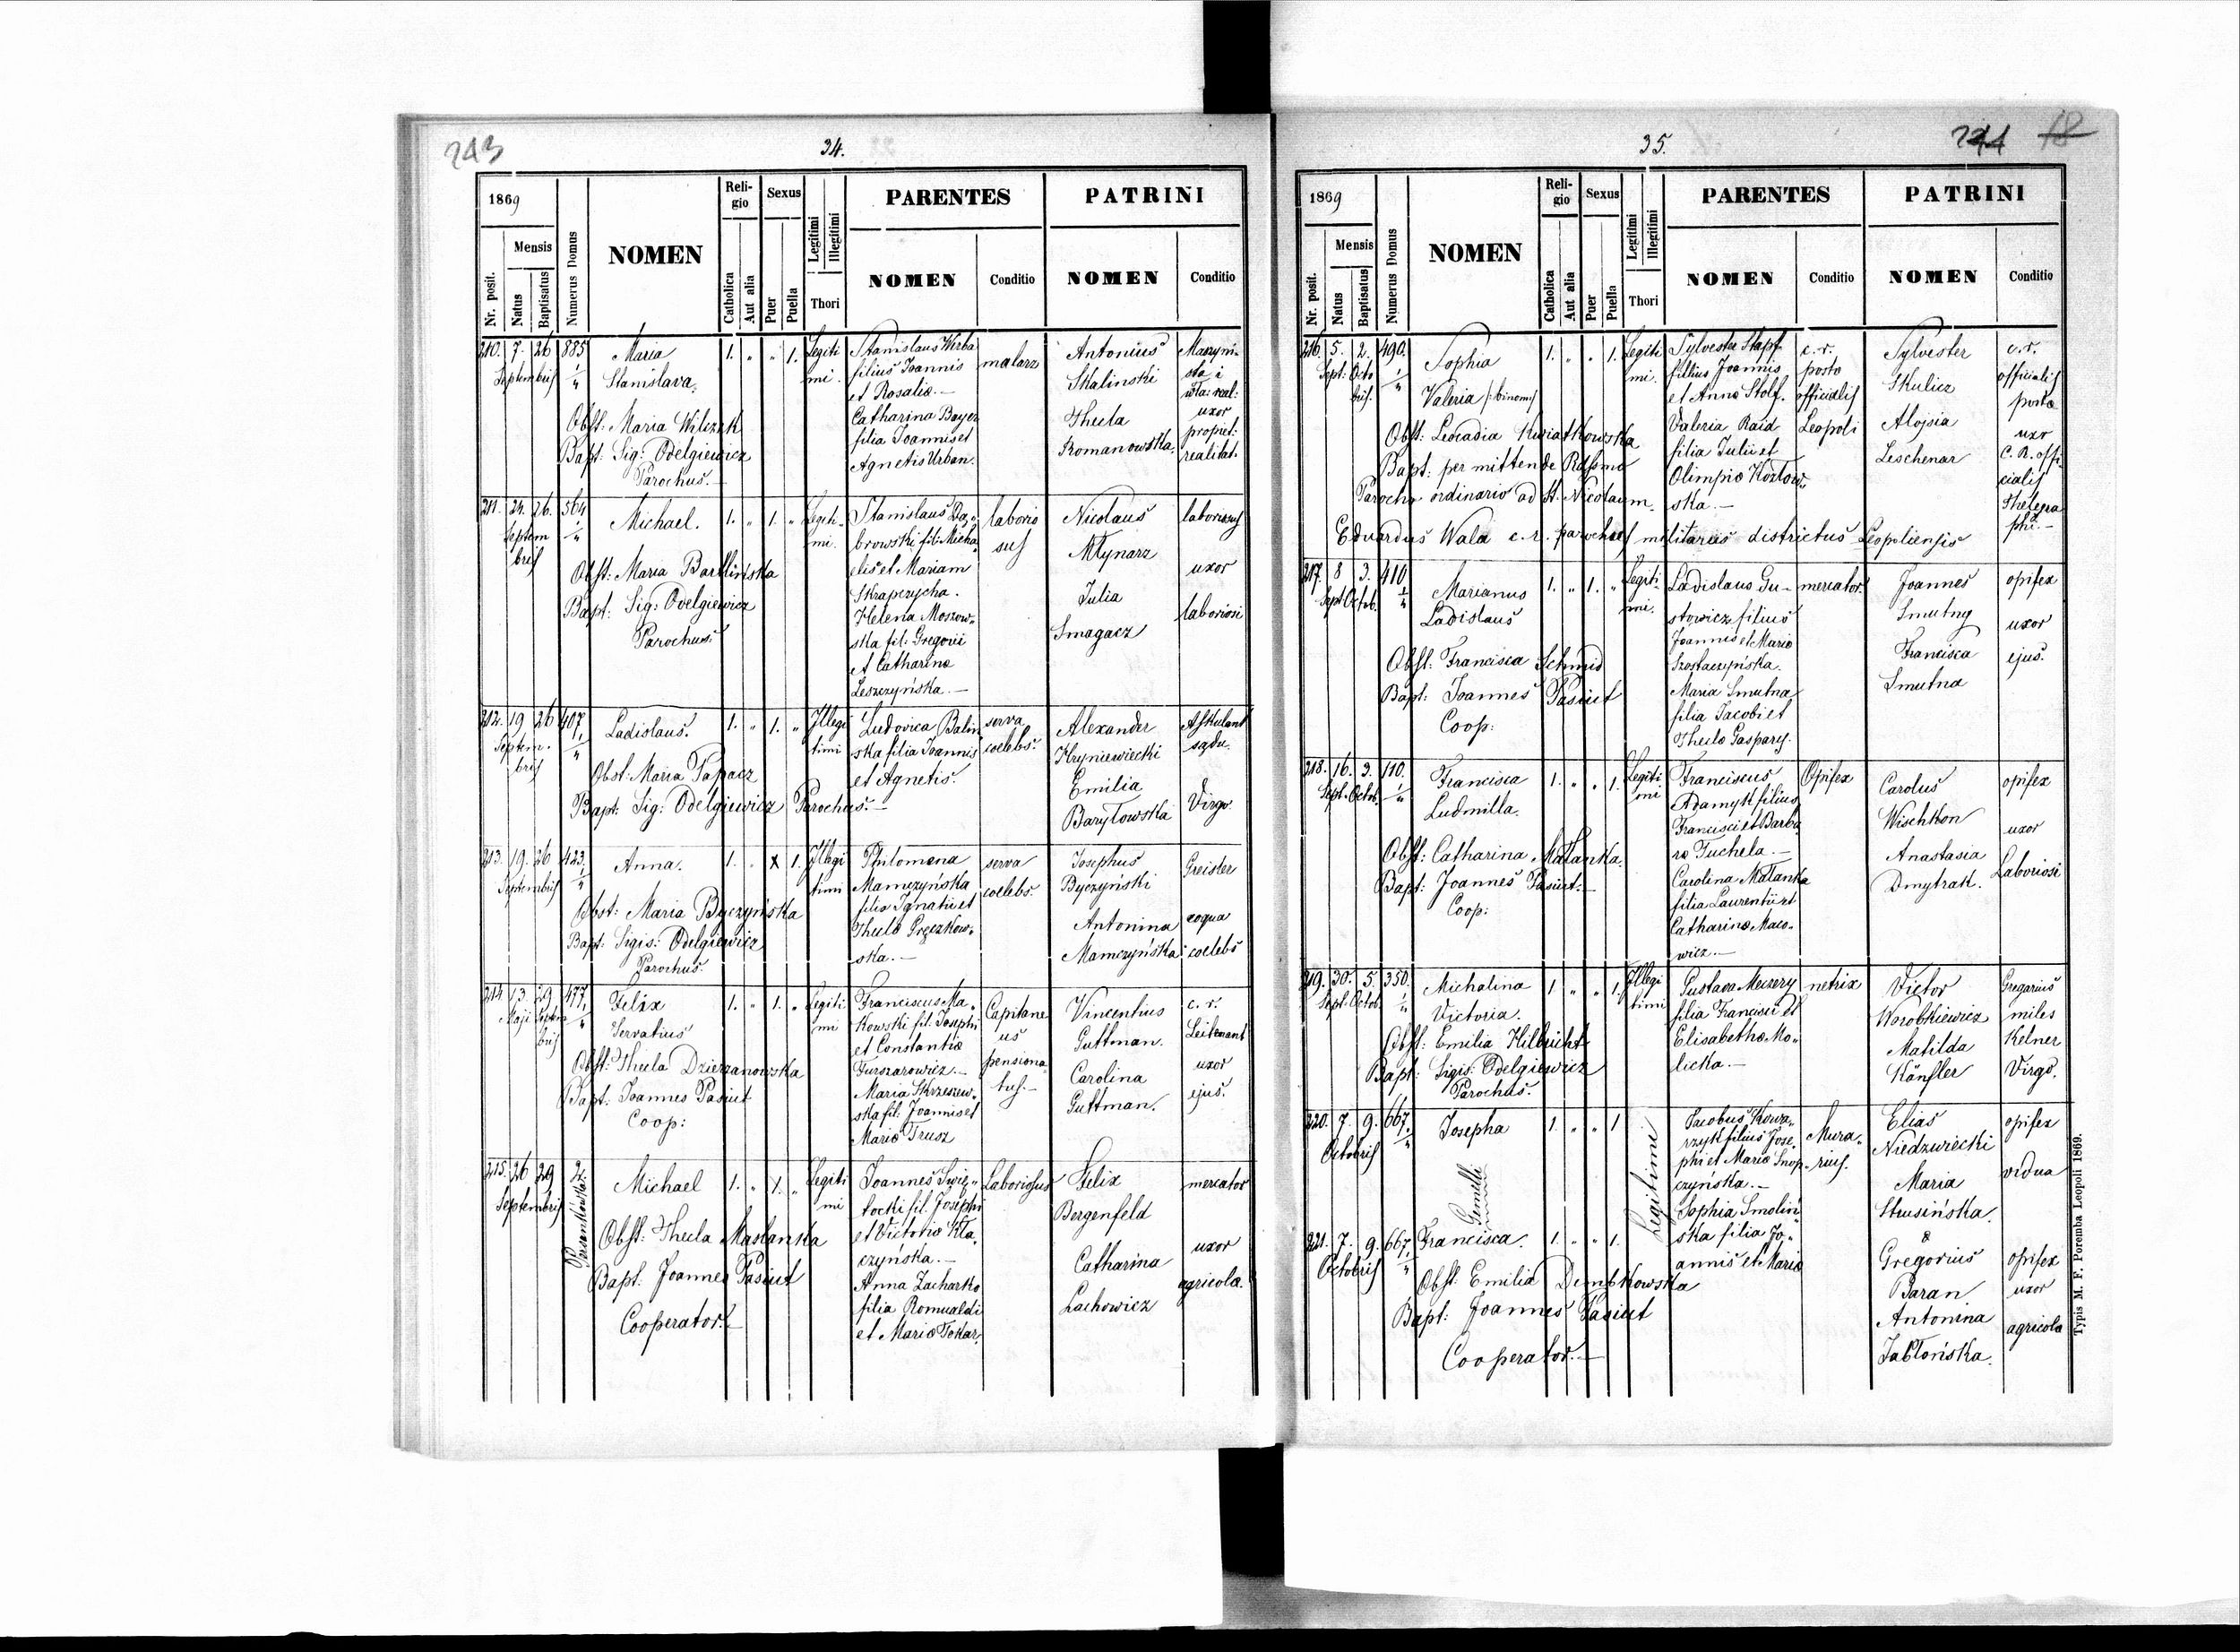 243
34.
1869
Mensis
Nr. posit.
Natus
Baptisatus
Numerus Domus
NOMEN
Reli-
gio
Catholica
Aut alia
Sexus
Puer
Puella
Legitimi
Illegitimi
Thori
PARENTES
NOMEN
Conditio
PATRINI
NOMEN
Conditio
210. 7. 26 885
Septembris
Maria
Stanislava.
1. " " 1.
Legiti
mi.
Obst: Maria Wilczek
Bapt: Sig: Odelgiewicz
Parochus.
Stanislaus Wirba
filius Joannis
et Rosaliæ.
Catharina Bayer
filia Joannis et
Agnetis Urban.
malarz
Antonius
Skalinski
Thecla
Romanowska.
Maszyni-
sta i
wła: real:
uxor
propriet:
realitat.
211. 24. 26. 564
Septem
bris
Michael.
1. " 1. "
Legiti-
mi.
Obst: Maria Barlińska
Bapt: Sig: Odelgiewicz
Parochus.
Stanislaus Dą-
browski fil: Micha
elis et Mariam
Skrapczycha.
Helena Moszow-
ska fil: Gregorii
et Catharinæ
Leszczyńska.
laborio
sus
Nicolaus
Młynarz
Julia
Smagacz
laboriosus
uxor
laboriosi
212. 19 26 407.
Septem-
bris
Ladislaus.
1. " 1. "
Illegi
timi
Obst: Maria Papacz
Bapt: Sig: Odelgiewicz Parochus.
Ludovica Balin
ska filia Joannis
et Agnetis.
serva
coelebs.
Alexander
Hryniewiecki
Emilia
Baryłowska
Askulant
sądu.
Virgo
213. 19. 26 423.
Septembris
Anna.
1. " x 1.
Illegi
timi
Obst: Maria Byczyńska
Bapt: Sigis: Odelgiewicz
Parochus.
Philomena
Mamczyńska
filia Ignatii et
Theclæ Pręczkow-
ska.
serva
coelebs.
Josephus
Byczyński
Antonina
Mamczyńska
Greisler
coqua
coelebs
214 13. 29 477.
Maji Septem
bris
Felix
Servatius
1. " 1. "
Legiti
mi
Obst: Thecla Dzierzanowska
Bapt: Joannes Pasiut
Coop:
Franciscus Ma-
kowski fil. Josephi
et Constantiæ
Turszarowicz.
Maria Skrzeszew-
ska fil: Joannis et
Mariæ Trusz
Capitane
us
pensiona
tus.
Vincentius
Guttman.
Carolina
Guttman.
c. r.
Leitenant
uxor
ejus.
215. 26 29 2.
Septembris
Persenkówka.
Michael
1. " 1. "
Legiti
mi
Obst: Thecla Mastanka
Bapt: Joannes Pasiut
Cooperator.
Joannes Swię-
tocki fil. Josephi
et Victoriæ Kła-
czyńska.
Anna Zacharko
filia Romualdi
et Mariæ Tokar.
Laboriosus
Felix
Bergenfeld
Catharina
Lachowicz
mercator
uxor
agricolæ.
35.
244 18
1869
Mensis
Nr. posit.
Natus
Baptisatus
Numerus Domus
NOMEN
Reli-
gio
Catholica
Aut alia
Sexus
Puer
Puella
Legitimi
Illegitimi
Thori
PARENTES
NOMEN
Conditio
PATRINI
NOMEN
Conditio
216. 5. 2. 490.
Sept: Octo
bris.
Sophia
Valeria /:binomis
1. " " 1.
Legiti
mi.
Obst: Leocadia Kwiatkowska
Bapt: permittende Rdssmo
Parocho ordinario ad St. Nicolaum.
Eduardus Wala c. r. parochus militaris districtus Leopoliensis
Sylvester Stapf
filius Joannis
et Annæ Stolf.
Valeria Raid
filia Julii et
Olimpiæ Kozłow-
ska.
c. r.
posto
officialis
Leopoli
Sylvester
Skulicz
Alojsia
Leschenar
c. r.
officialis
postæ
uxor
C. R. offi-
cialis
Thelegra
phi.
217. 8 3. 410
Sept Octob.
Marianus
Ladislaus
1. " 1. "
Legiti-
mi.
Obst: Francisca Schmid
Bapt: Joannes Pasiut
Coop:
Ladislaus Gu-
stowicz filius
Joannis et Mariæ
Szostaczyńska.
Maria Smutna
filia Jacobi et
Theclæ Gaspary.
mercator.
Joannes
Smutny
Francisca
Smutna
opifex
uxor
ejus.
218. 16. 3. 110.
Sept. Octob.
Francisca
Ludmilla.
1. " " 1.
Legiti
mi
Obst: Catharina Małanka.
Bapt: Joannes Pasiut.
Coop:
Franciscus
Adamyk filius
Francisci et Barba
ræ Tuchela.
Carolina Małanka
filia Laurentii et
Catharinæ Maco-
wicz.
Opifex
Carolus
Wischkon
Anastasia
Dmytrak.
opifex
uxor
Laboriosi
219. 30. 5. 350.
Sept. Octob.
Michalina
Victoria.
1 " " 1.
Illegi
timi
Obst: Emilia Hilbricht
Bapt: Sigis: Odelgiewicz
Parochus.
Gustava Meczery
filia Francisci et
Elisabethæ Mo-
licka.
netrix
Victor
Worobkiewicz
Matilda
Känfler
Gregarius
miles
Kelner
Virgo.
220. 7. 9. 667.
Octobris
Josepha
1. " " 1
Gemelli
Legitimi
Jacobus Kowa-
rzyk filius Jose-
phi et Mariæ Snop-
czyńska.
Sophia Smolin-
ska filia Jo-
annis et Mariæ
Mura-
rius.
Elias
Niedzwiecki
Maria
Strusińska.
&
opifex
vidua
221. 7. 9. 667.
Octobris
Francisca.
1. " " 1.
Obst: Emilia Dembkowska
Bapt: Joannes Pasiut
Cooperator.
Gregorius
Baran
Antonina
Jabłońska.
opifex
uxor
agricolæ
Typis M. F. Poremba Leopoli 1869.